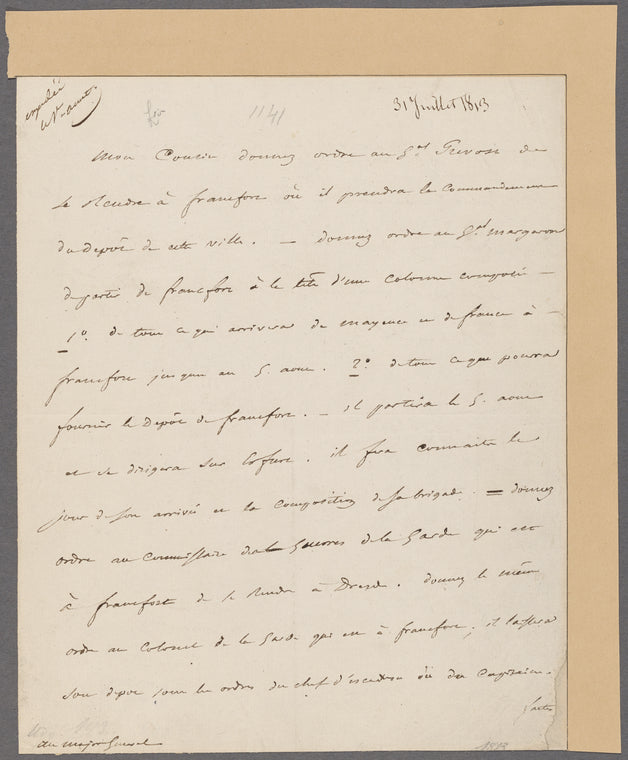 expédié
le 1er aout
31 Juillet 1813
1141
Mon Cousin donnez ordre au Gal Prevost de
se Rendre à francfort où il prendra le Commandement
du Depôt de cette ville. — donnez ordre au Gal margaron
de partir de francfort à la tête d'une colonne composée —
1o. de tout ce qui arrivera de mayence et de france à —
francfort jusqu'au 5. aout. 2o. de tout ce que pourra
fournir le Depôt de francfort. — il partira le 5. aout
et se dirigera sur Erfurt. il fera connaitre le
jour de son arrivée et la composition de sa brigade. — donnez
ordre au commissaire des Guerres de la Garde qui est
à francfort de se Rendre à Dresde. donnez le même
ordre au Colonel de la Garde qui est à francfort, il laissera
son depot sous les ordres du chef d'escadron où du Capitaine.
faites
au major General
1813